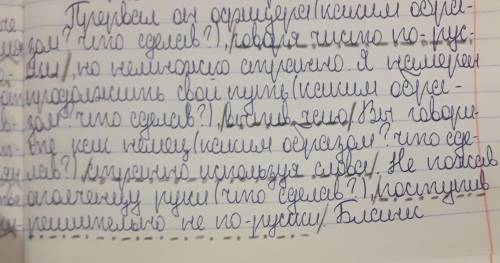 Прервал он офицера (каким обра-
зом? что сделав?), говоря чисто по-рус-
ски/, но немножко странно. Я намерен
продолжить свой путь (каким обра-
зом? что сделав?), выпив чаю/ Вы говори-
те как немец (каким образом? что сде-
лав?), странно используя слова/. Не пожав
ополченцу руки (что сделав?), поступив
решительно не по-русски/ Бланк